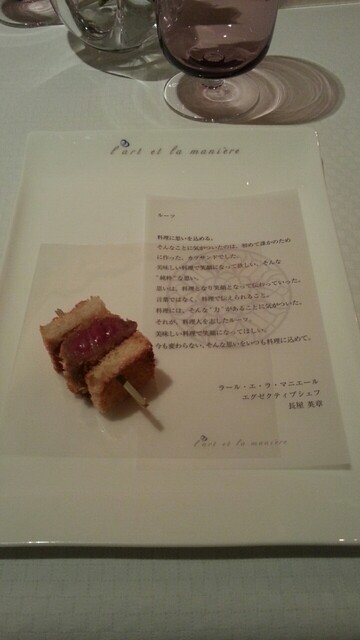 l'art et la manière
ルーツ
料理に思いを込める。
そんなことに気がついたのは、初めて誰かのため
に作った、タマサンドでした。
美味しい料理で笑顔になって欲しい、そんな
"純粋"な思い。
思いは、料理となり笑顔となって伝わっていった。
言葉ではなく、料理で伝えられること。
料理には、そんな"力"があることに気がついた。
それが、料理人を志したルーツ。
美味しい料理で笑顔になってほしい。
今も変わらない、そんな思いをいつも料理に込めて。
ラール・エ・ラ・マニエール
エグゼクティブシェフ
長屋 英章
l'art et la manière